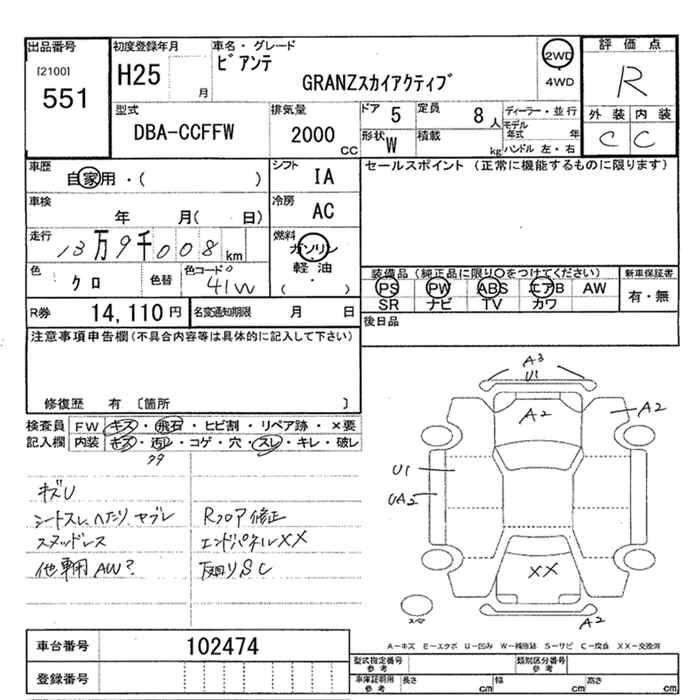 出品番号
[2100]
551
初度登録年月
H25
月
車名・グレード
ビアンテ
GRANZスカイアクティブ
2WD
4WD
評価点
R
外装 内装
C C
型式
DBA-CCFFW
排気量
2000 CC
ドア 5
定員 8 人
形状 W
積載 kg
ディーラー・並行
モデル年式 年
ハンドル 左・右
車歴
自家用・( )
シフト
IA
セールスポイント (正常に機能するものに限ります)
車検
年 月( 日)
冷房
AC
走行
13万9千008 km
燃料
ガソリン
軽油
( ・ )
色
クロ
色替
色コード
41W
装備品 (純正品に限り○をつけてください)
PS PW ABS エアB AW
SR ナビ TV カワ
新車保証書
有・無
R券
14,110円
名変通知期限
月 日
後日品
注意事項申告欄(不具合内容等は具体的に記入して下さい)
修復歴 有 〔箇所 〕
検査員記入欄
FW キズ・飛石・ヒビ割・リペア跡・×要
内装 キズ・汚レ・コゲ・穴・スレ・キレ・破レ
シートスレ、ヘタリ、ヤブレ
スタッドレス
他車用AW?
Rフロア修正
エンドパネルXX
A3
U1
A2
A2
U1
UA2
XX
A2
スペア
A-キズ E-エクボ U-凹み W-補修跡 S-サビ C-腐食 XX-交換済
車台番号
102474
登録番号
型式指定番号
参考
類別区分番号
参考
車庫証明用
参考
長さ cm
幅 cm
高さ cm